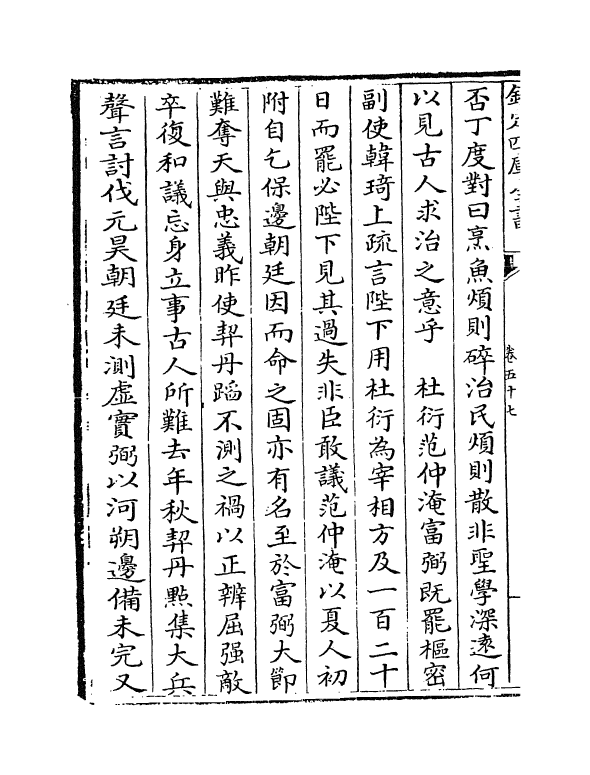 欽定四庫全書
卷五十七
否丁度對曰烹魚煩則碎治民煩則散非聖學深逺何
以見古人求治之意乎　杜衍范仲淹富弼既罷樞密
副使韓琦上疏言陛下用杜衍為宰相方及一百二十
日而罷必陛下見其過失非臣敢議范仲淹以夏人初
附自乞保邊朝廷因而命之固亦有名至於富弼大節
難奪天與忠義昨使契丹蹈不測之禍以正辨屈强敵
卒復和議忘身立事古人所難去年秋契丹點集大兵
聲言討伐元昊朝廷未測虛實弼以河朔邊備未完又